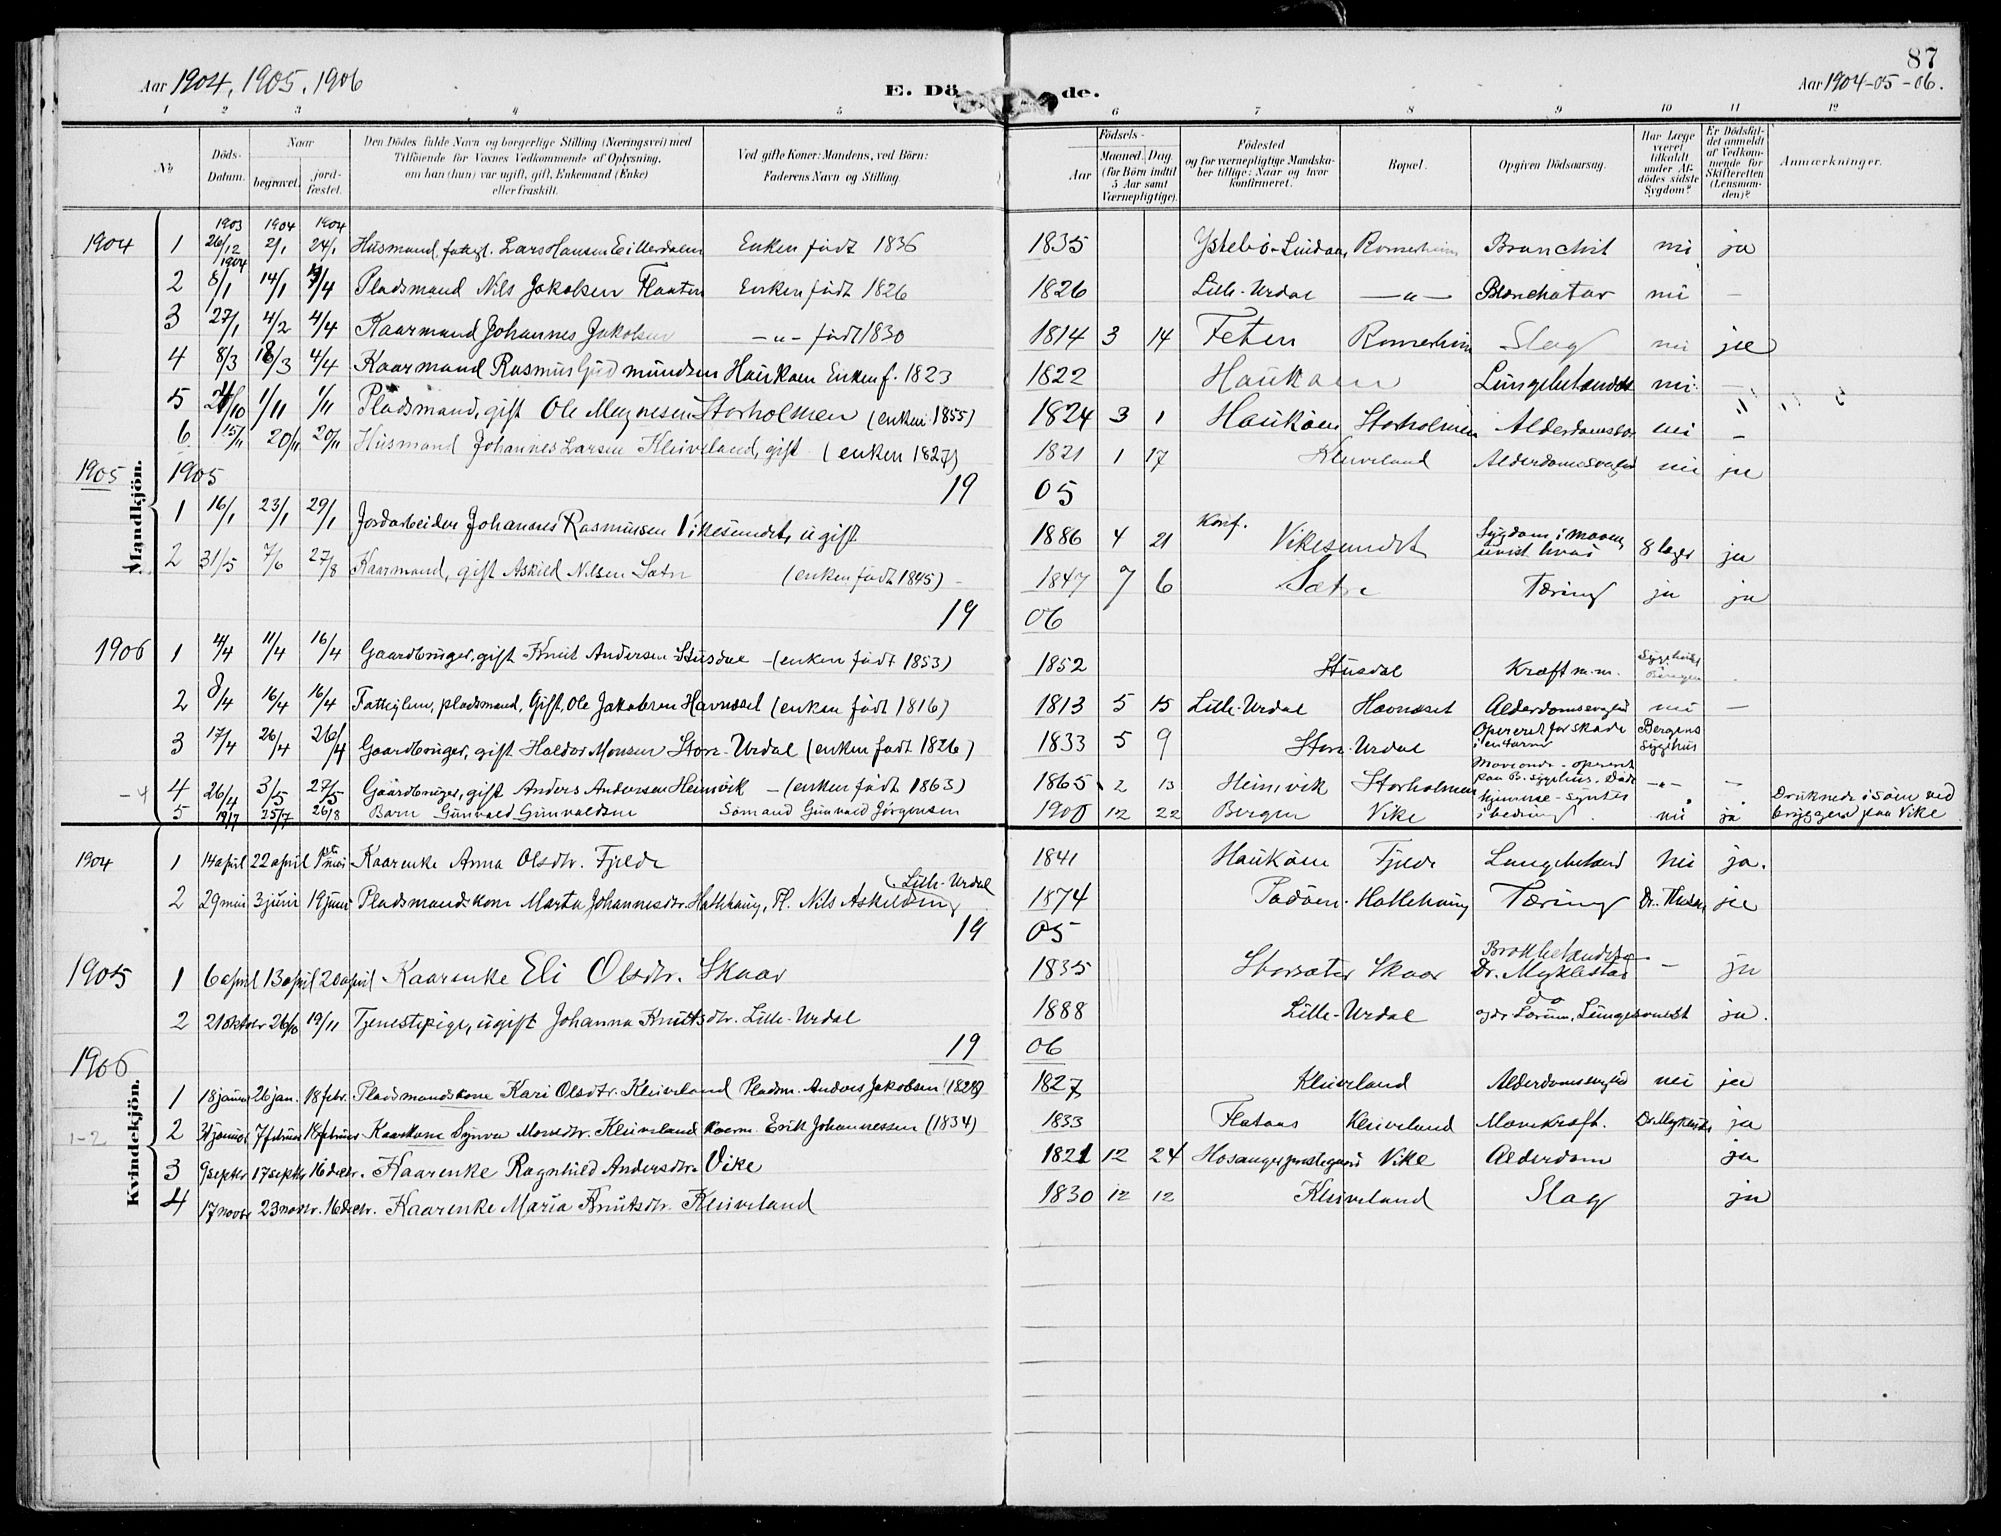 87
Aar 1904, 1905, 1906
E. Dö de.
Aar 1904-05-06.
1 2 3 4 5 6 7 8 9 10 11 12
No
Döds-Datum.
Naar
begravet.
jordfæstet.
Den Dödes fulde Navn og borgerlige Stilling (Næringsvei) med
Tilföiende for Voxnes Vedkommende af Oplysning,
om han (hun) var ugift, gift, Enkemand (Enke)
eller fraskilt.
Ved gifte Koner: Mandens, ved Börn:
Faderens Navn og Stilling.
Födsels-
Aar
Maaned. Dag.
(for Börn indtil
5 Aar samt
Værnepligtige).
Födested
og for værnepligtige Mandskaber tillige: Naar og hvor konfirmeret.
Bopæl.
Opgiven Dödsaarsag.
Har Læge været tilkaldt under Afdödes sidste Sygdom?
Er Dödsfaldet anmeldt af Vedkommende for Skifteretten (Lensmanden)?
Anmærkninger.
Mandkjön.
1903 1904 1904
1904 1 26/12 2/1 24/1 Husmand, fattigl. Lars Hansen Enken födt 1836 1835 Ystebö-Lindaas Romerheim nei ja
1904
2 8/1 14/1 4/4 Pladsmand Nils Jakobsen Flaaten Enken födt 1826 1826 Lille-Urdal -"- nei —
3 27/1 4/2 4/4 Kaarmand Johannes Jakobsen -"- födt 1830 1814 3 14 Feten Romerheim Slag nei ja
4 8/3 18/3 4/4 Kaarmand Rasmus Gudmundsen Haukaen Enken f. 1823 1822 Haukaen Lungebetændelse nei —
5 24/10 1/11 1/11 Pladsmand, gift Ole Magnesen Storholmen (enken 1855) 1824 3 1 Haukaen Storholmen nei "
6 15/11 20/11 20/11 Husmand Johannes Larsen Kleiveland, gift (enken 1827) 1821 1 17 Kleiveland Alderdomssvaghed nei ja
1905 1905 19 05
1 16/1 23/1 29/1 Jordarbeider Johannes Rasmussen Vikesundet, ugift 1886 4 21 Konf. Vikesundet Sygdom i maven, uvist hvad 8 læger ja
2 31/5 7/6 27/8 Kaarmand, gift Askild Nilsen Sætre (enken födt 1845) - 1847 7 6 Sætre Tæring ja ja
19 06
1906 1 4/4 11/4 16/4 Gaardbruger, gift Knut Andersen Stusdal - (enken födt 1853) 1852 Stusdal Kræft m.m. Sygehuset Bergen
2 8/4 16/4 16/4 Fattiglem, pladsmand, Gift, Ole Jakobsen Havnæset (enken födt 1816) 1813 5 15 Lille-Urdal Havnæset Alderdomssvaghed nei —
3 17/4 26/4 26/4 Gaardbruger, gift Haldor Monsen Store-Urdal (enken födt 1826) 1833 5 9 Store-Urdal Opereret for skade i en tarm Bergens Sygehus
-4 4 26/4 3/5 27/5 Gaardbruger, gift Anders Andersen Heimvik - (enken födt 1863) 1865 2 13 Heimvik Storholmen Maveonde - opereret paa B. sygehus. Döde -"- —
5 19/7 25/7 26/8 Barn Gunvald Gunvaldsen Sömand Gunvald Jörgensen 1900 12 22 Bergen Vike nei ja Druknede i söen ved bryggen paa Vike
Kvindekjön.
1904 1 14 april 22 april 1ste mai Kaarenke Anna Olsdtr. Fjelde 1841 Haukaen Fjelde Lungebetænd nei ja.
2 29 mai 3 juni 19 juni Pladsmandskone Marta Johannesdtr. Hatlehaug, Pl. Nils Askildsen (Lille-Urdal 1874 Padöen Hatlehaug Tæring Dr. ja
19 05
1905 1 6 april 13 april 20 april Kaarenke Eli Olsdtr. Skaar 1835 Storsæter Skaar Brokbetændelse Dr. Myklestad — ja
2 21 oktober 26/10 19/11 Tjenestepige, ugift Johanna Knutsdtr. Lille-Urdal 1888 Lille-Urdal ja.
1906 19 06
1 18 januar 26 jan. 18 febr. Pladsmandskone Kari Olsdtr. Kleiveland Pladsm. Anders Jakobsen (1828) 1827 Kleiveland Alderdomssvaghed nei ja
1-2 2 31 januar 7 februar 18 februar Kaarkone Synva Monsdtr. Kleiveland Kaarm. Erik Johannessen (1834) 1833 Flataas Kleiveland Mavekræft. Dr. Myklestad ja
3 9 septbr 17 septbr 16 decbr. Kaarenke Ragnhild Andersdtr. Vike 1821 12 24 Hosanger prestegaard Vike Alderdom ja
4 17 novbr 23 novbr. 16 decbr. Kaarenke Maria Knutsdtr. Kleiveland 1830 12 12 Kleiveland Slag ja